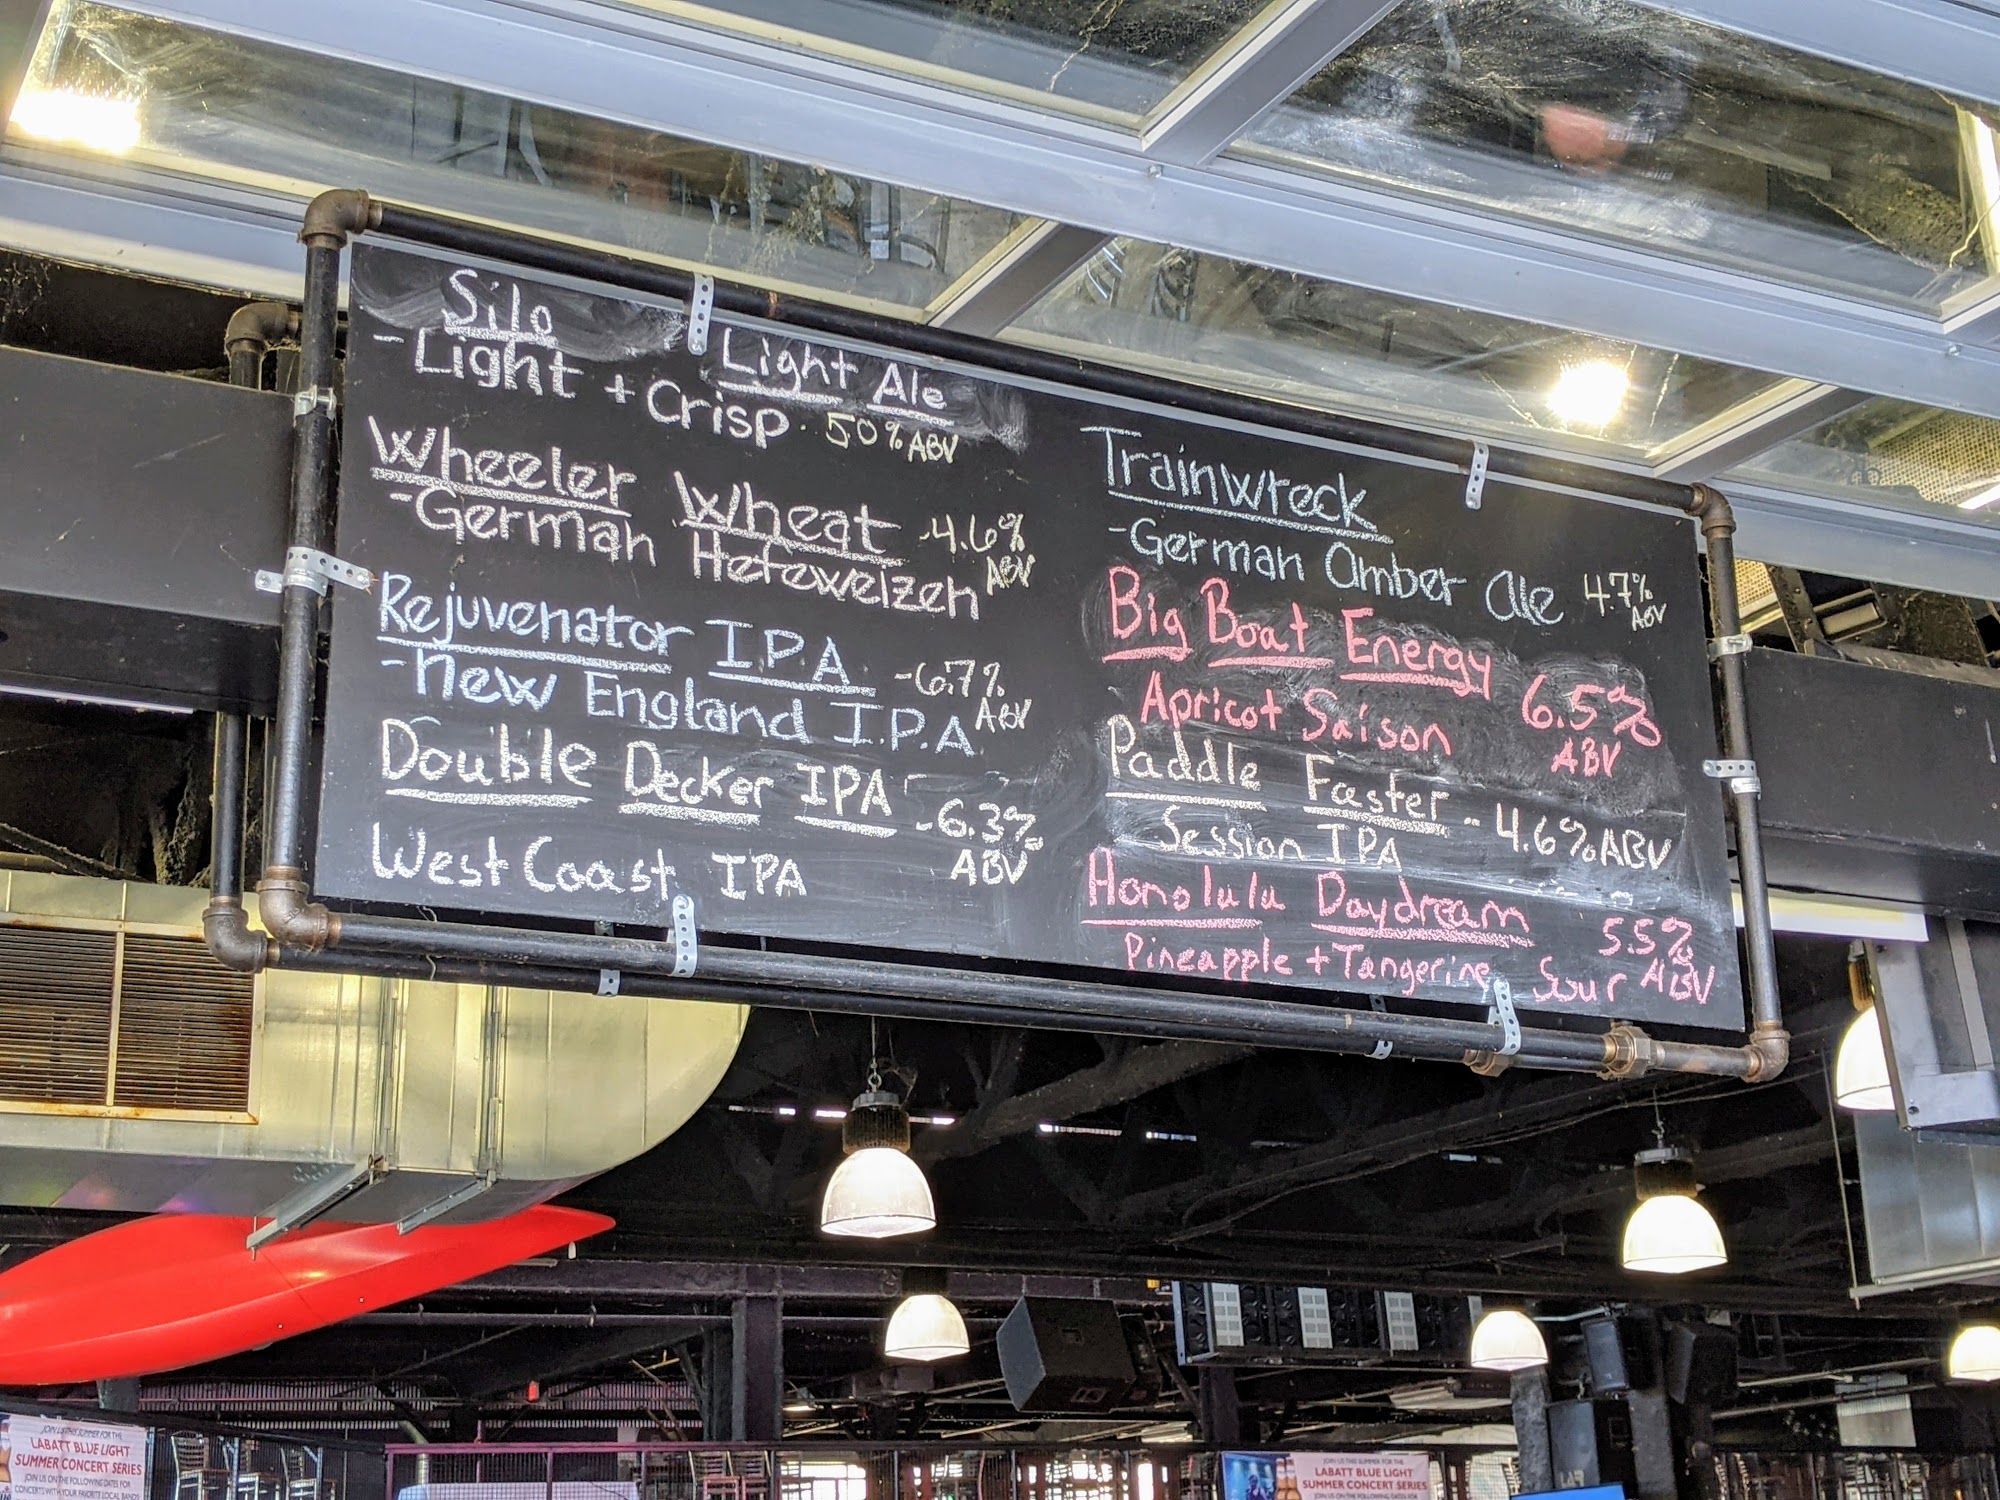 Silo Light Ale
-Light + Crisp · 5.0% ABV
Wheeler Wheat -4.6% ABV
-German Hefeweizen
Rejuvenator I.P.A. -6.7% ABV
-New England I.P.A.
Double Decker IPA -6.3% ABV
West Coast IPA
Trainwreck
-German Amber Ale 4.7% ABV
Big Boat Energy 6.5% ABV
Apricot Saison
Paddle Faster -- 4.6% ABV
Session IPA
Honolulu Daydream 5.5% ABV
Pineapple + Tangerine Sour
JOIN US THIS SUMMER FOR THE
LABATT BLUE LIGHT
SUMMER CONCERT SERIES
JOIN US ON THE FOLLOWING DATES FOR
CONCERTS WITH YOUR FAVORITE LOCAL BANDS
JOIN US THIS SUMMER FOR THE
LABATT BLUE LIGHT
SUMMER CONCERT SERIES
JOIN US ON THE FOLLOWING DATES FOR